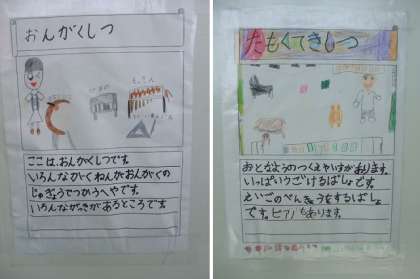 おんがくしつ
もっきん
ここは、おんがくしつです。
いろんながくねんがおんがくの
じゅぎょうでつかうへやです。
いろんながっきがあるところです。
たもくてきしつ
おとなようのつくえやいすがあります。
いっぱいうごけるばしょです。
えいごのべんきょうをするばしょ
です。ピアノもあります。